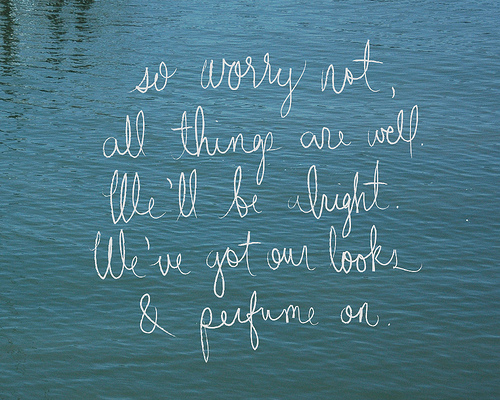 so worry not,
all things are well.
We'll be alright.
We've got our looks
& perfume on.